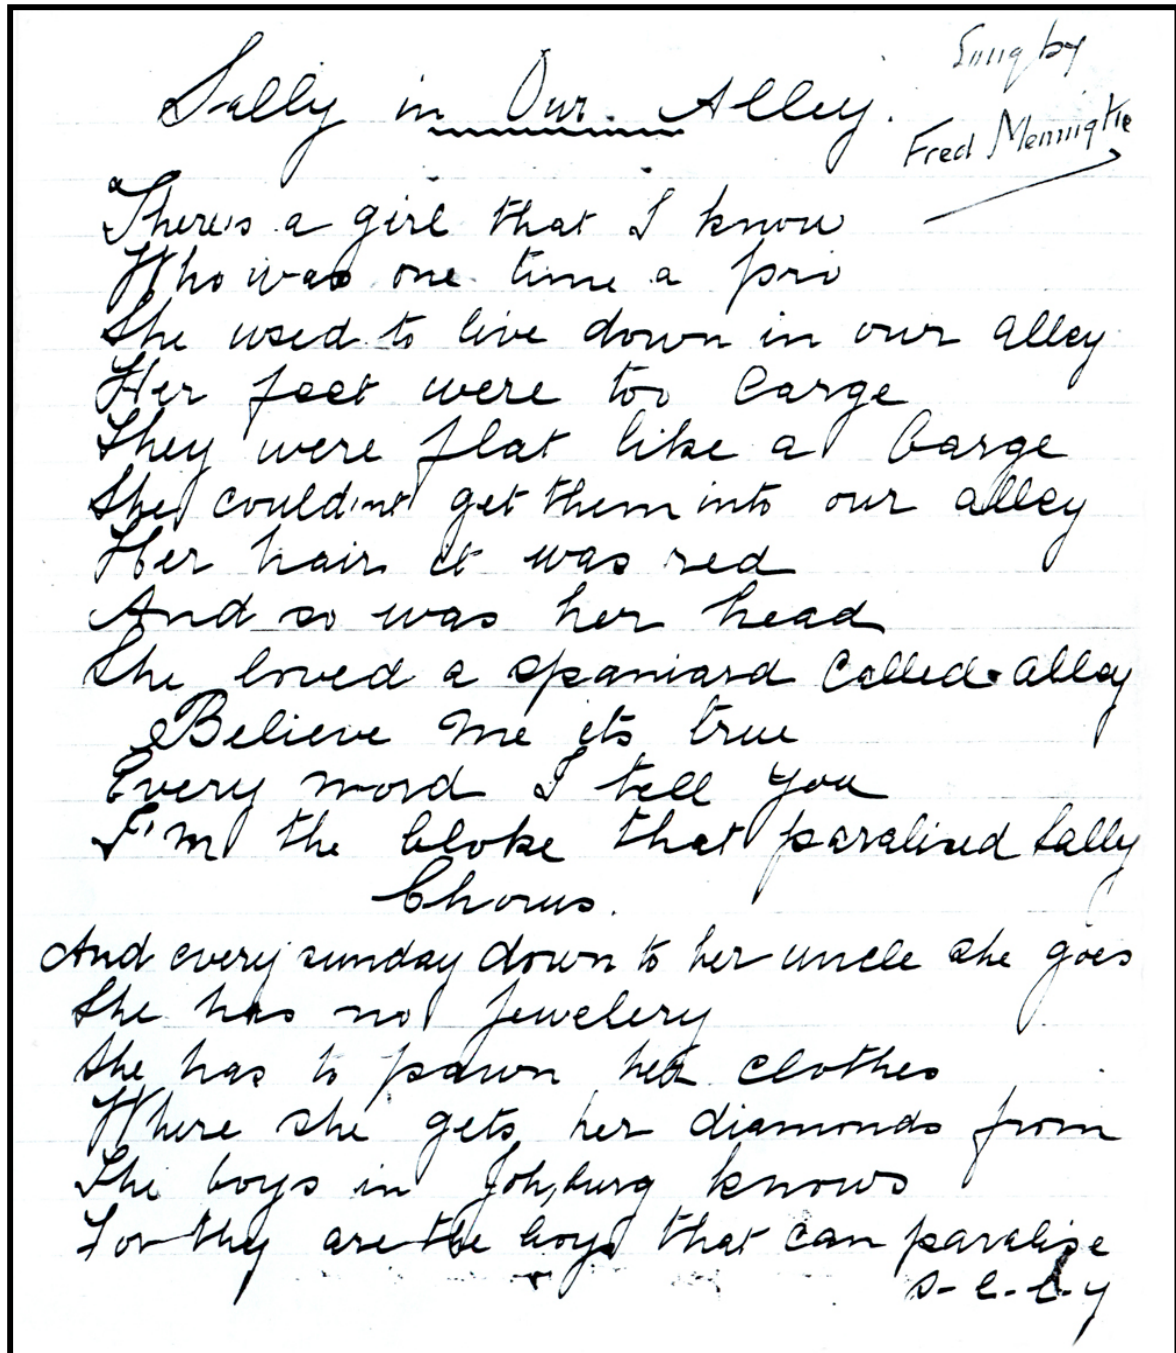 Sung by
Sally in Our. Alley.
Fred Mennigke
There's a girl that I know
Who was one time a pro
She used to live down in our alley
Her feet were too large
They were flat like a barge
She could'nt get them into our alley
Her hair it was red
And so was her head
She loved a spaniard Called alley
Believe me its true
Every word I tell you
I'm the bloke that paralised Sally
Chorus.
And every sunday down to her uncle she goes
She has no Jewelery
She has to pawn her clothes
Where she gets her diamonds from
The boys in Joh,burg knows
For they are the boys that can paralise
S-l-l-y